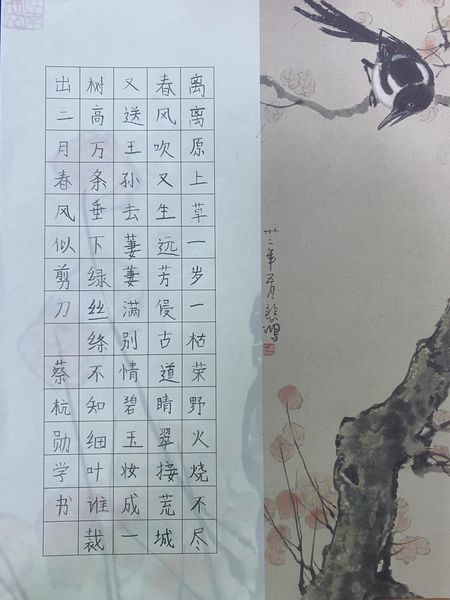 离离原上草一岁一枯荣野火烧不尽
春风吹又生远芳侵古道晴翠接荒城
又送王孙去萋萋满别情碧玉妆成一
树高万条垂下绿丝绦不知细叶谁裁
出二月春风似剪刀 蔡杭勋学书
卅二年五月 悲鸿